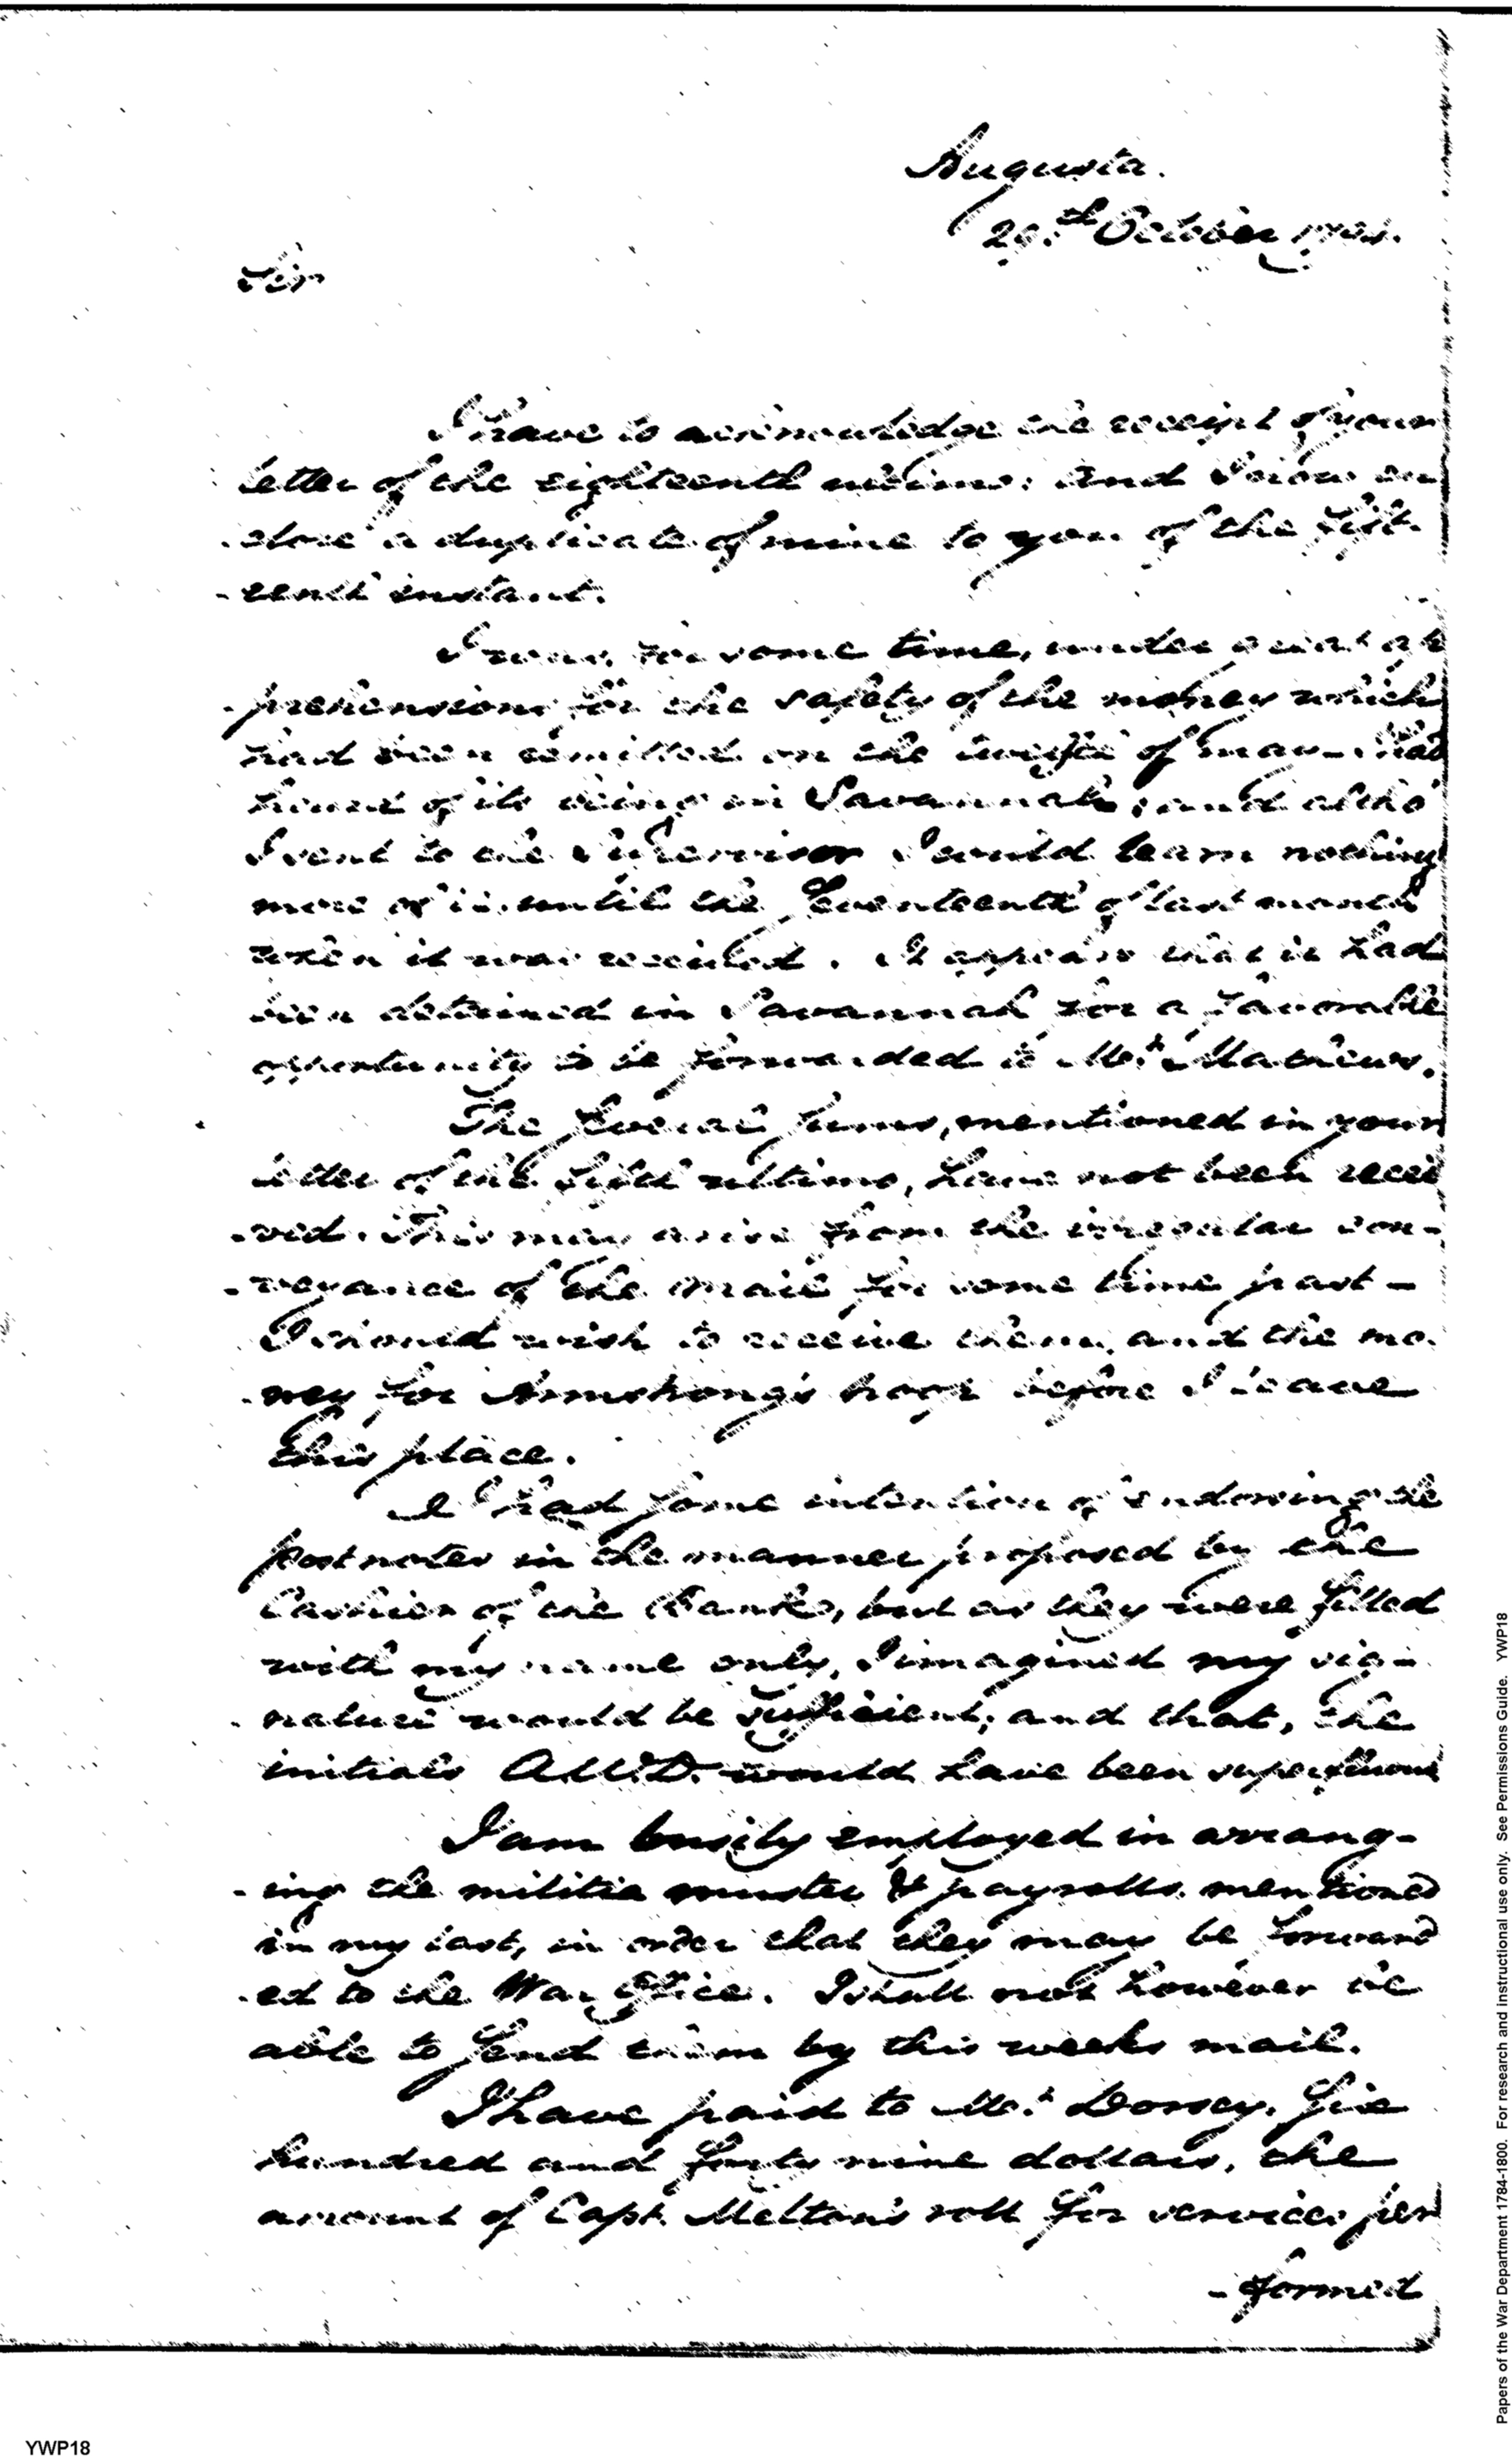 Augusta.
29th October
Sir
I have to acknowledge the receipt of your
letter of the eighteenth ultimo: and I now en
close a duplicate of mine to you of the fift
eenth instant.
I was, for some time, under great ap
prehensions for the safety of the money which
had been remitted on the of may — I had
heard of its being in Savannah; and altho'
I sent to the Supervisor I could learn nothing
more of it until the Seventeenth of last month
when it was received. It appears that it had
been detained in Savannah for a favorable
opportunity to be forwarded to Mr. Mathews.
The several sums, mentioned in your
letter of the fifth ultimo, have not been recei
-ved. This may arise from the irregular con-
-veyance of the mail for some time past —
I should wish to receive them, and the mo.
-ney for Armstrong's before I leave
this place.
I had some intention of indorsing the
post notes in the manner proposed by the
Cashier of the Banks, but as they were filled
with my name only, I imagined my sig-
-nature would be sufficient; and that, the
initials A.W.D. would have been superfluous
I am busily employed in arrang-
-ing the militia muster & payrolls mentioned
in my last, in order that they may be forward
-ed to the War Office. I shall not however be
able to send them by this weeks mail.
I have paid to Mr. Dorsey, five
hundred and forty nine dollars, the
amount of Capt. Melton's roll for services per
-formed
Papers of the War Department 1784-1800. For research and instructional use only. See Permissions Guide. YWP18
YWP18